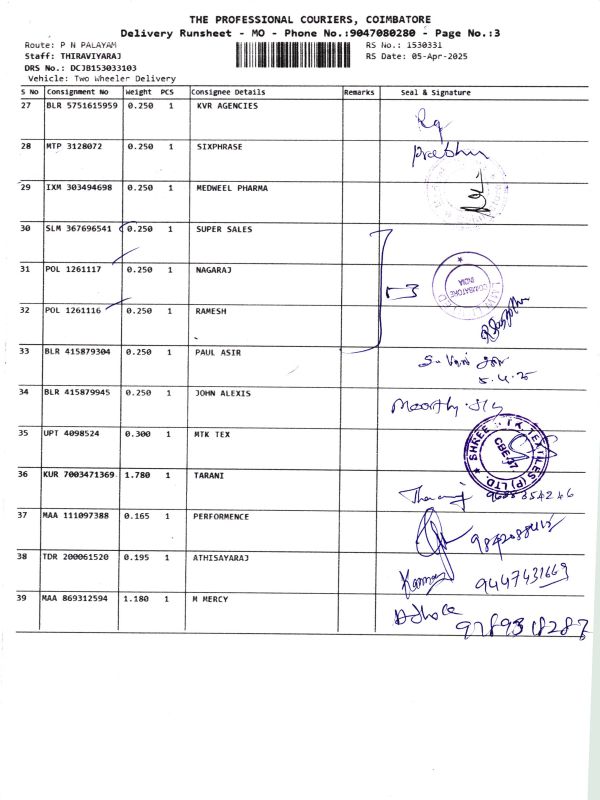 THE PROFESSIONAL COURIERS, COIMBATORE
Delivery Runsheet - MO - Phone No.:9047080280 - Page No.:3
Route: P N PALAYAM RS No.: 1530331
Staff: THIRAVIYARAJ RS Date: 05-Apr-2025
DRS No.: DCJB153033103
Vehicle: Two Wheeler Delivery
S No Consignment No Weight PCS Consignee Details Remarks Seal & Signature
27 BLR 5751615959 0.250 1 KVR AGENCIES
28 MTP 3128072 0.250 1 SIXPHRASE Prabhu
29 IXM 303494698 0.250 1 MEDWEEL PHARMA
30 SLM 367696541 0.250 1 SUPER SALES
31 POL 1261117 0.250 1 NAGARAJ
COIMBATORE
INDIA
32 POL 1261116 0.250 1 RAMESH
33 BLR 415879304 0.250 1 PAUL ASIR
5.4.25
34 BLR 415879945 0.250 1 JOHN ALEXIS Moorthy
35 UPT 4098524 0.300 1 MTK TEX
SHREE TEXTILES (P) LTD.
CBE-37.
36 KUR 7003471369 1.780 1 TARANI
37 MAA 111097388 0.165 1 PERFORMENCE
38 TDR 200061520 0.195 1 ATHISAYARAJ Kannan 9447431669
39 MAA 869312594 1.180 1 M MERCY 9789318287